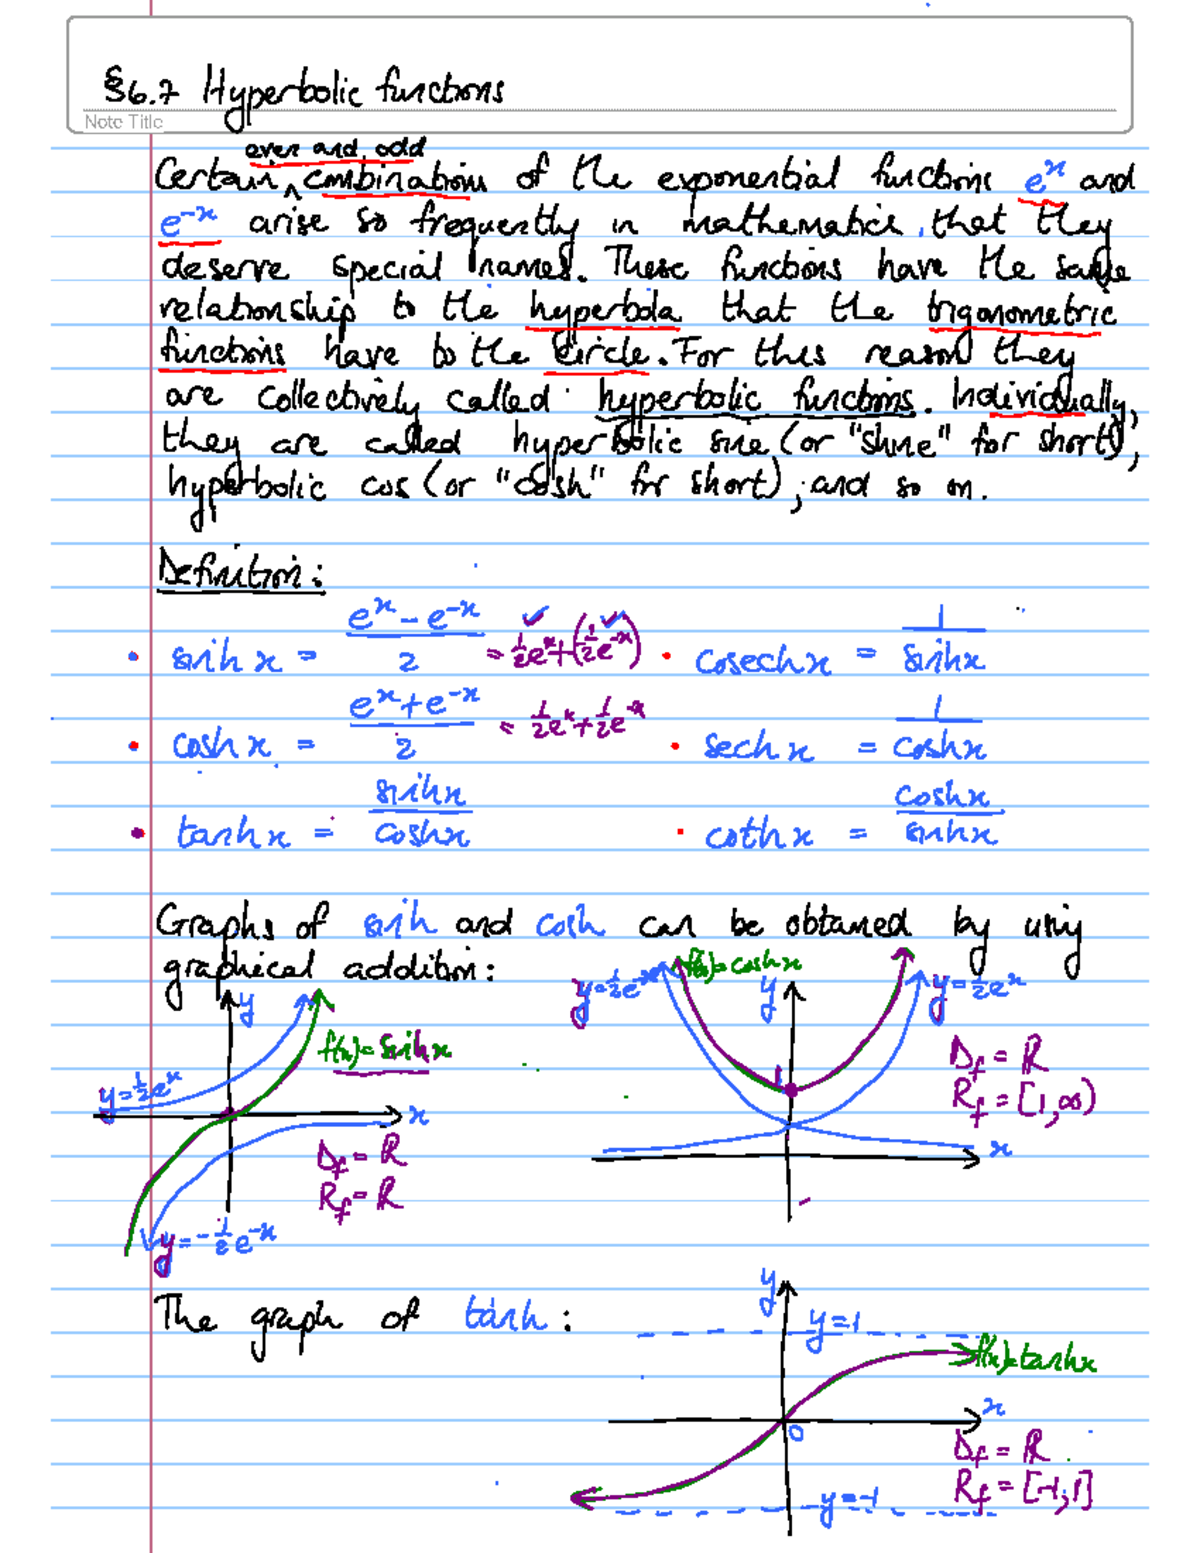 §6.7 Hyperbolic functions
Note Title
even and odd
Certain ^ combinations of the exponential functions eˣ and
e⁻ˣ arise so frequently in mathematics, that they
deserve special names. These functions have the same
relationship to the hyperbola that the trigonometric
functions have to the circle. For this reason they
are collectively called hyperbolic functions. Individually,
they are called hyperbolic sine (or "shine" for short),
hyperbolic cos (or "cosh" for short), and so on.
Definition:
• sinh x = (eˣ − e⁻ˣ)/2 = ½eˣ + (−½e⁻ˣ) • cosech x = 1/sinh x
• cosh x = (eˣ + e⁻ˣ)/2 = ½eˣ + ½e⁻ˣ • sech x = 1/cosh x
• tanh x = sinh x/cosh x • coth x = cosh x/sinh x
Graphs of sinh and cosh can be obtained by using
graphical addition:
y
f(x) = sinh x
y = ½eˣ
x
D_f = ℝ
R_f = ℝ
y = −½e⁻ˣ
f(x) = cosh x
y = ½e⁻ˣ
y
y = ½eˣ
1
D_f = ℝ
R_f = [1, ∞)
x
The graph of tanh:
y
y = 1
f(x) = tanh x
x
0
D_f = ℝ
R_f = [-1, 1]
y = -1